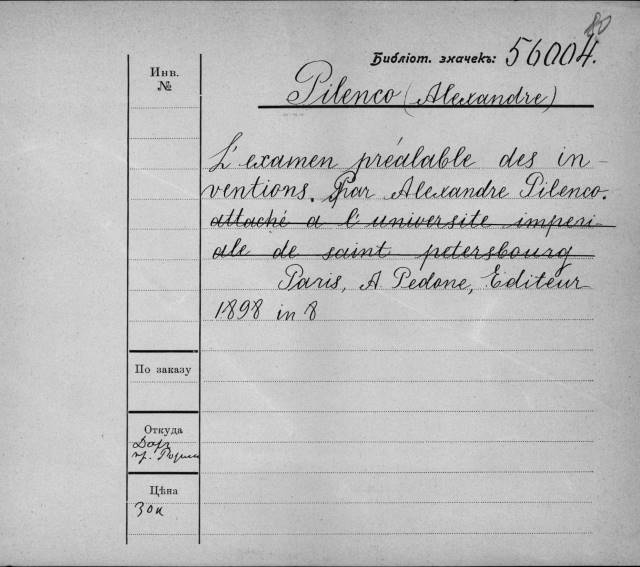 80
Библіот. значекъ: 56004.
Инв.
№
Pilenco (Alexandre)
L'examen préalable des in-
ventions. Par Alexandre Pilenco.
attaché a l'université imperi-
ale de saint petersbourg
Paris, A Pedone, Editeur
1898 in 8
По заказу
Откуда
Даръ
гр.
Цѣна
30к